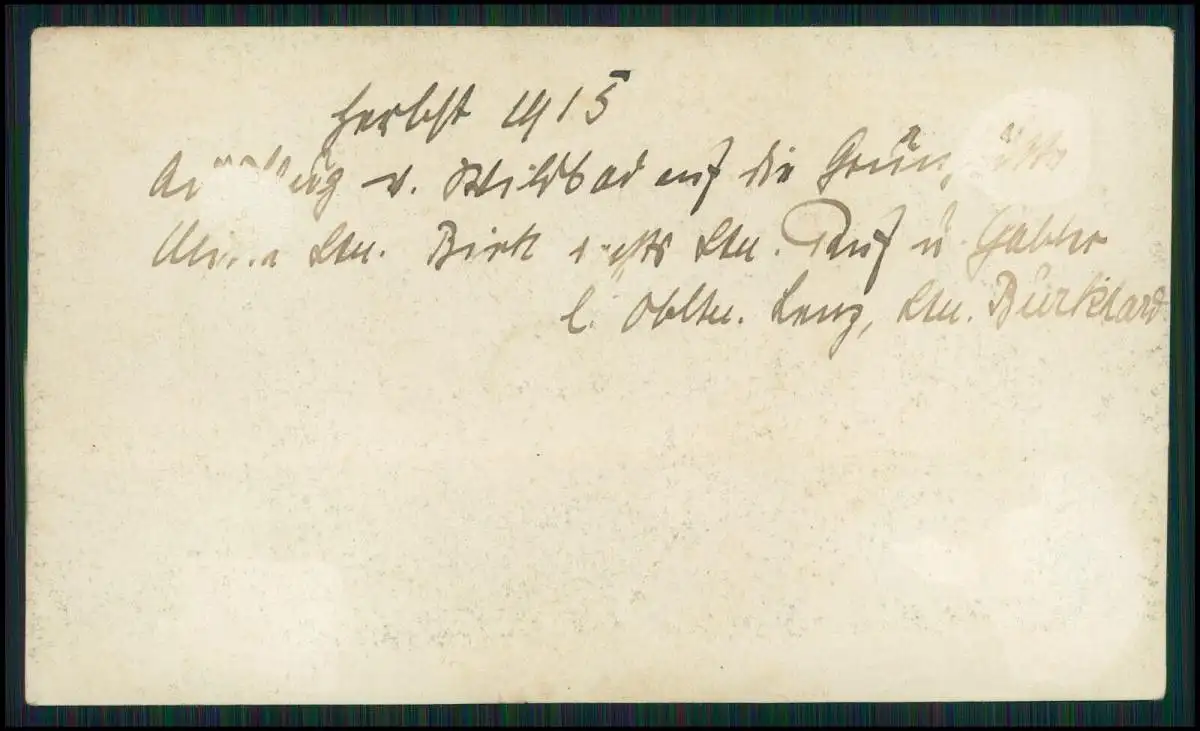 Herbst 1915
Ausflug v. Wildbad auf die Grünhütte
Ltn. Birk rechts Ltn. Ruf u. Gabler
l. Obltn. Lenz, Ltn. Burkhard